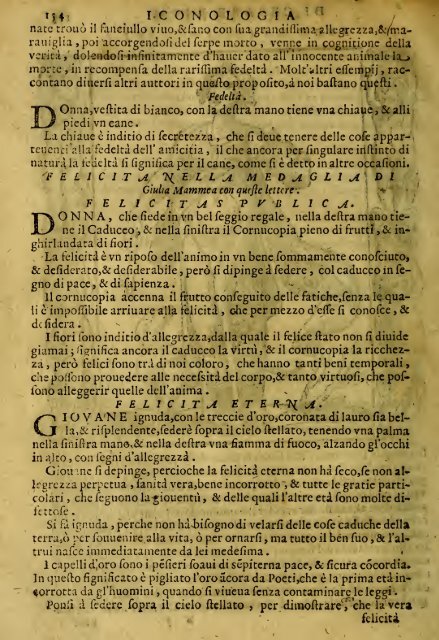 154 ICONOLOGIA
nate trouò il fanciullo viuo,&sano con sua grandissima allegrezza,&ma-
rauiglia, poi accorgendosi del serpe morto, venne in cognitione della
verità, dolendosi infinitamente d'hauer dato all'innocente animale la
morte, in recompensa della rarissima fedeltà. Molt'altri essempij, rac-
contano diuersi altri auttori in questo proposito,à noi bastano questi.
Fedeltà.
DOnna,vestita di bianco, con la destra mano tiene vna chiaue, & alli
piedi vn cane.
La chiaue è inditio di secretezza, che si deue tenere delle cose appar-
tenenti alla fedeltà dell'amicitia, il che ancora per singulare instinto di
natura la fedeltà si significa per il cane, come si è detto in altre occasioni.
FELICITA NELLA MEDAGLIA DI
Giulia Mammea con queste lettere.
FELICITAS PVBLICA.
DONNA, che siede in vn bel seggio regale, nella destra mano tie-
ne il Caduceo, & nella sinistra il Cornucopia pieno di frutti, & in-
ghirlandata di fiori.
La felicità è vn riposo dell'animo in vn bene sommamente conosciuto,
& desiderato,& desiderabile, però si dipinge à sedere, col caduceo in se-
gno di pace, & di sapienza.
Il cornucopia accenna il frutto conseguito delle fatiche,senza le qua-
li è impossibile arriuare alla felicità, che per mezzo d'esse si conosce, &
desidera.
I fiori sono inditio d'allegrezza,dalla quale il felice stato non si diuide
giamai; significa ancora il caducco la virtù, & il cornucopia la ricchez-
za, però felici sono trà di noi coloro, che hanno tanti beni temporali,
che possono prouedere alle necessità del corpo,& tanto virtuosi, che pos-
sono alleggerir quelle dell'anima.
FELICITA ETERNA.
GIOVANE ignuda,con le treccie d'oro,coronata di lauro sia bel-
la,& risplendente,sederè sopra il cielo stellato, tenendo vna palma
nella sinistra mano,& nella destra vna fiamma di fuoco, alzando gl'occhi
in alto, con segni d'allegrezza.
Giouane si depinge, percioche la felicità eterna non hà seco,se non al-
legrezza perpetua, sanità vera,bene incorrotto, & tutte le gratie parti-
colari, che seguono la giouentù, & delle quali l'altre età sono molte di-
fettose.
Si fà ignuda, perche non hà bisogno di velarsi delle cose caduche della
terra,ò per souuenire alla vita, ò per ornarsi, ma tutto il ben suo, & l'al-
trui nasce immediatamente da lei medesima.
I capelli d'oro sono i pensieri soaui di sépiterna pace, & sicura cócordia.
In questo significato è pigliato l'oro ácora da Poeti,che è la prima età in-
corrotta da gl'huomini, quando si viueua senza contaminare le leggi.
Ponsi à sedere sopra il cielo stellato, per dimostrare, che la vera
felicità